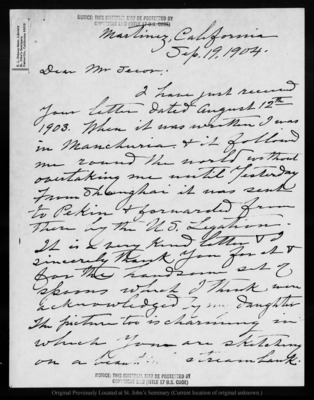 NOTICE: THIS MATERIAL MAY BE PROTECTED BY
COPYRIGHT LAW (TITLE 17 U.S. CODE)
Martinez, California
Sep. 19, 1904.
Dear Mr
I have just received
your letter dated August 12th
1903. When it was written I was
in Manchuria & it followed
me round the world without
overtaking me until yesterday
From Shanghai it was sent
to Pekin & forwarded from
there by the U.S. Legation.
It is a very kind letter & I
sincerely thank you for it &
for the handsome set of
spoons which I think were
acknowledged by my daughter
The picture too is charming in
which you are sketching
on a streambank.
NOTICE: THIS MATERIAL MAY BE PROTECTED BY
COPYRIGHT LAW (TITLE 17 U.S. CODE)
Original Previously Located at St. John's Seminary (Current location of original unknown.)